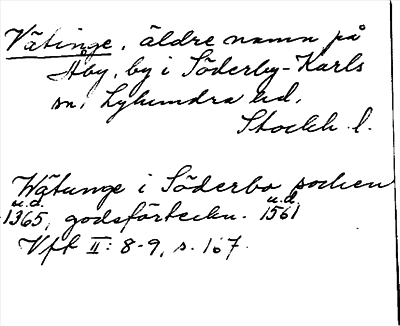 Vätinge, äldre namn på
Åby, by i Söderby-Karls
sn, Lyhundra hd,
Stockh. l.
Wätunge i Söderbo socken
u.d. u.d.
1365, godsförteckn. 1561
Vft II: 8-9, s. 167.